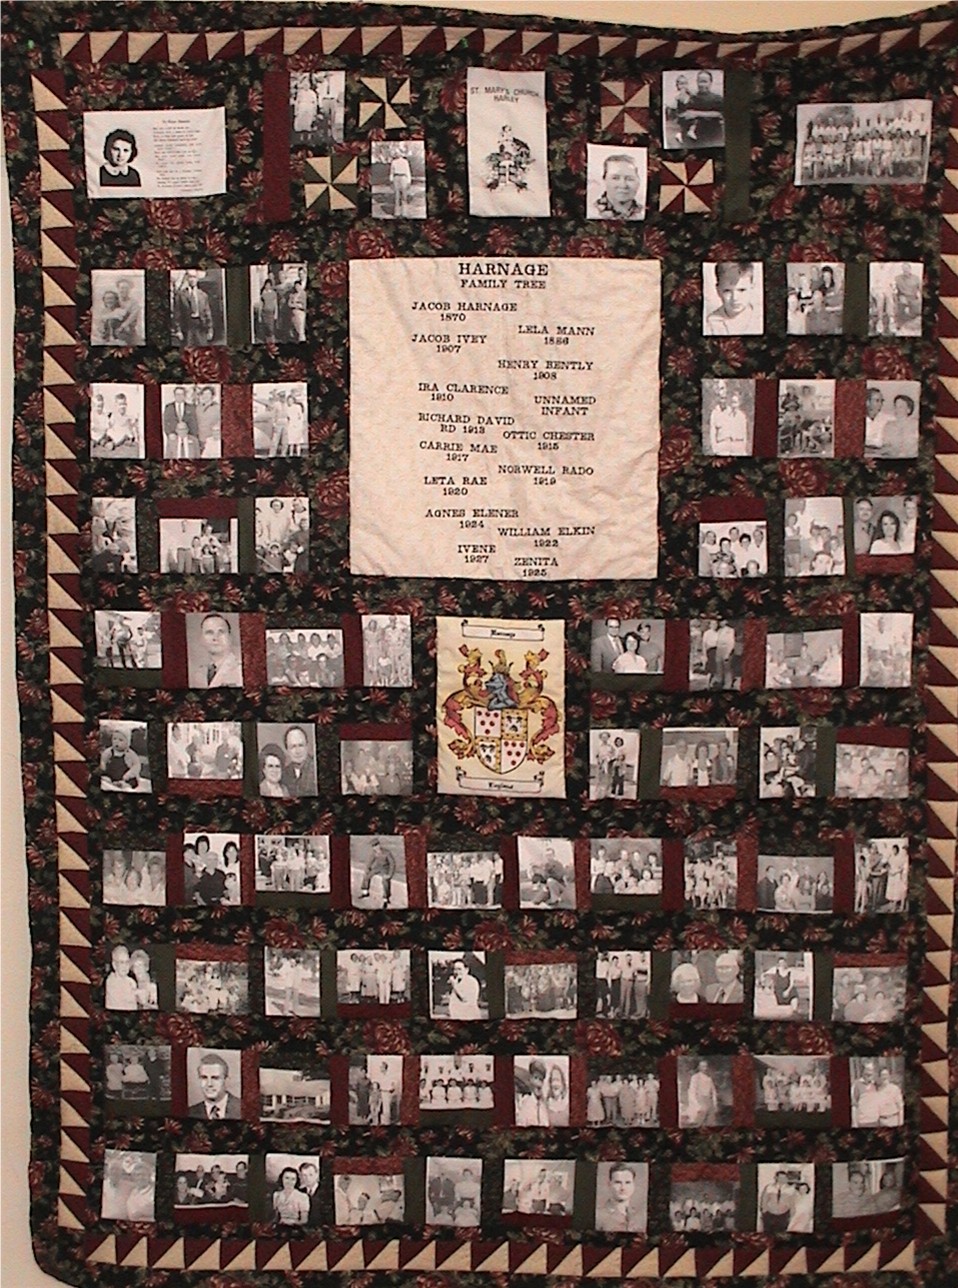 ST. MARY'S CHURCH
HARNAGE
FAMILY TREE
JACOB HARNAGE
1870
LELA MANN
1886
JACOB IVEY
1907
HENRY BENTLY
1908
IRA CLARENCE
1910
UNNAMED
INFANT
RICHARD DAVID
RD 1913
OTTIC CHESTER
1915
CARRIE MAE
1917
NORWELL RADO
1919
LETA RAE
1920
AGNES ELENER
1924
WILLIAM ELKIN
1922
IVENE
1927
ZENITA
1925
Harnage
England